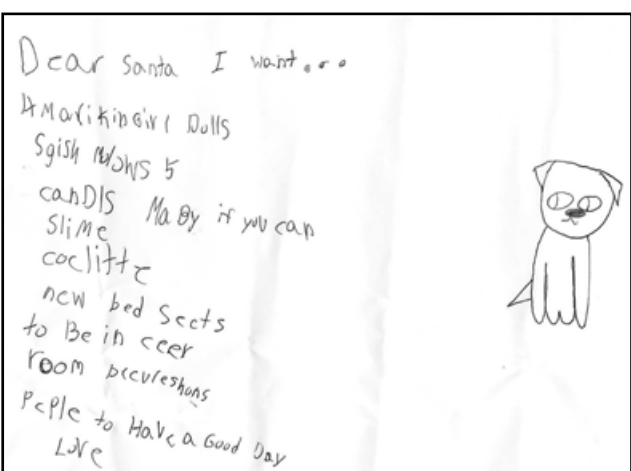 Dear Santa I want...
AMarikinGirl Dolls
Sgish Mlows 5
canDls MaBy if you can
Slime
coclitte
new bed Seets
to Be in ceer
room decureshons
PePle to Have a Good Day
Love